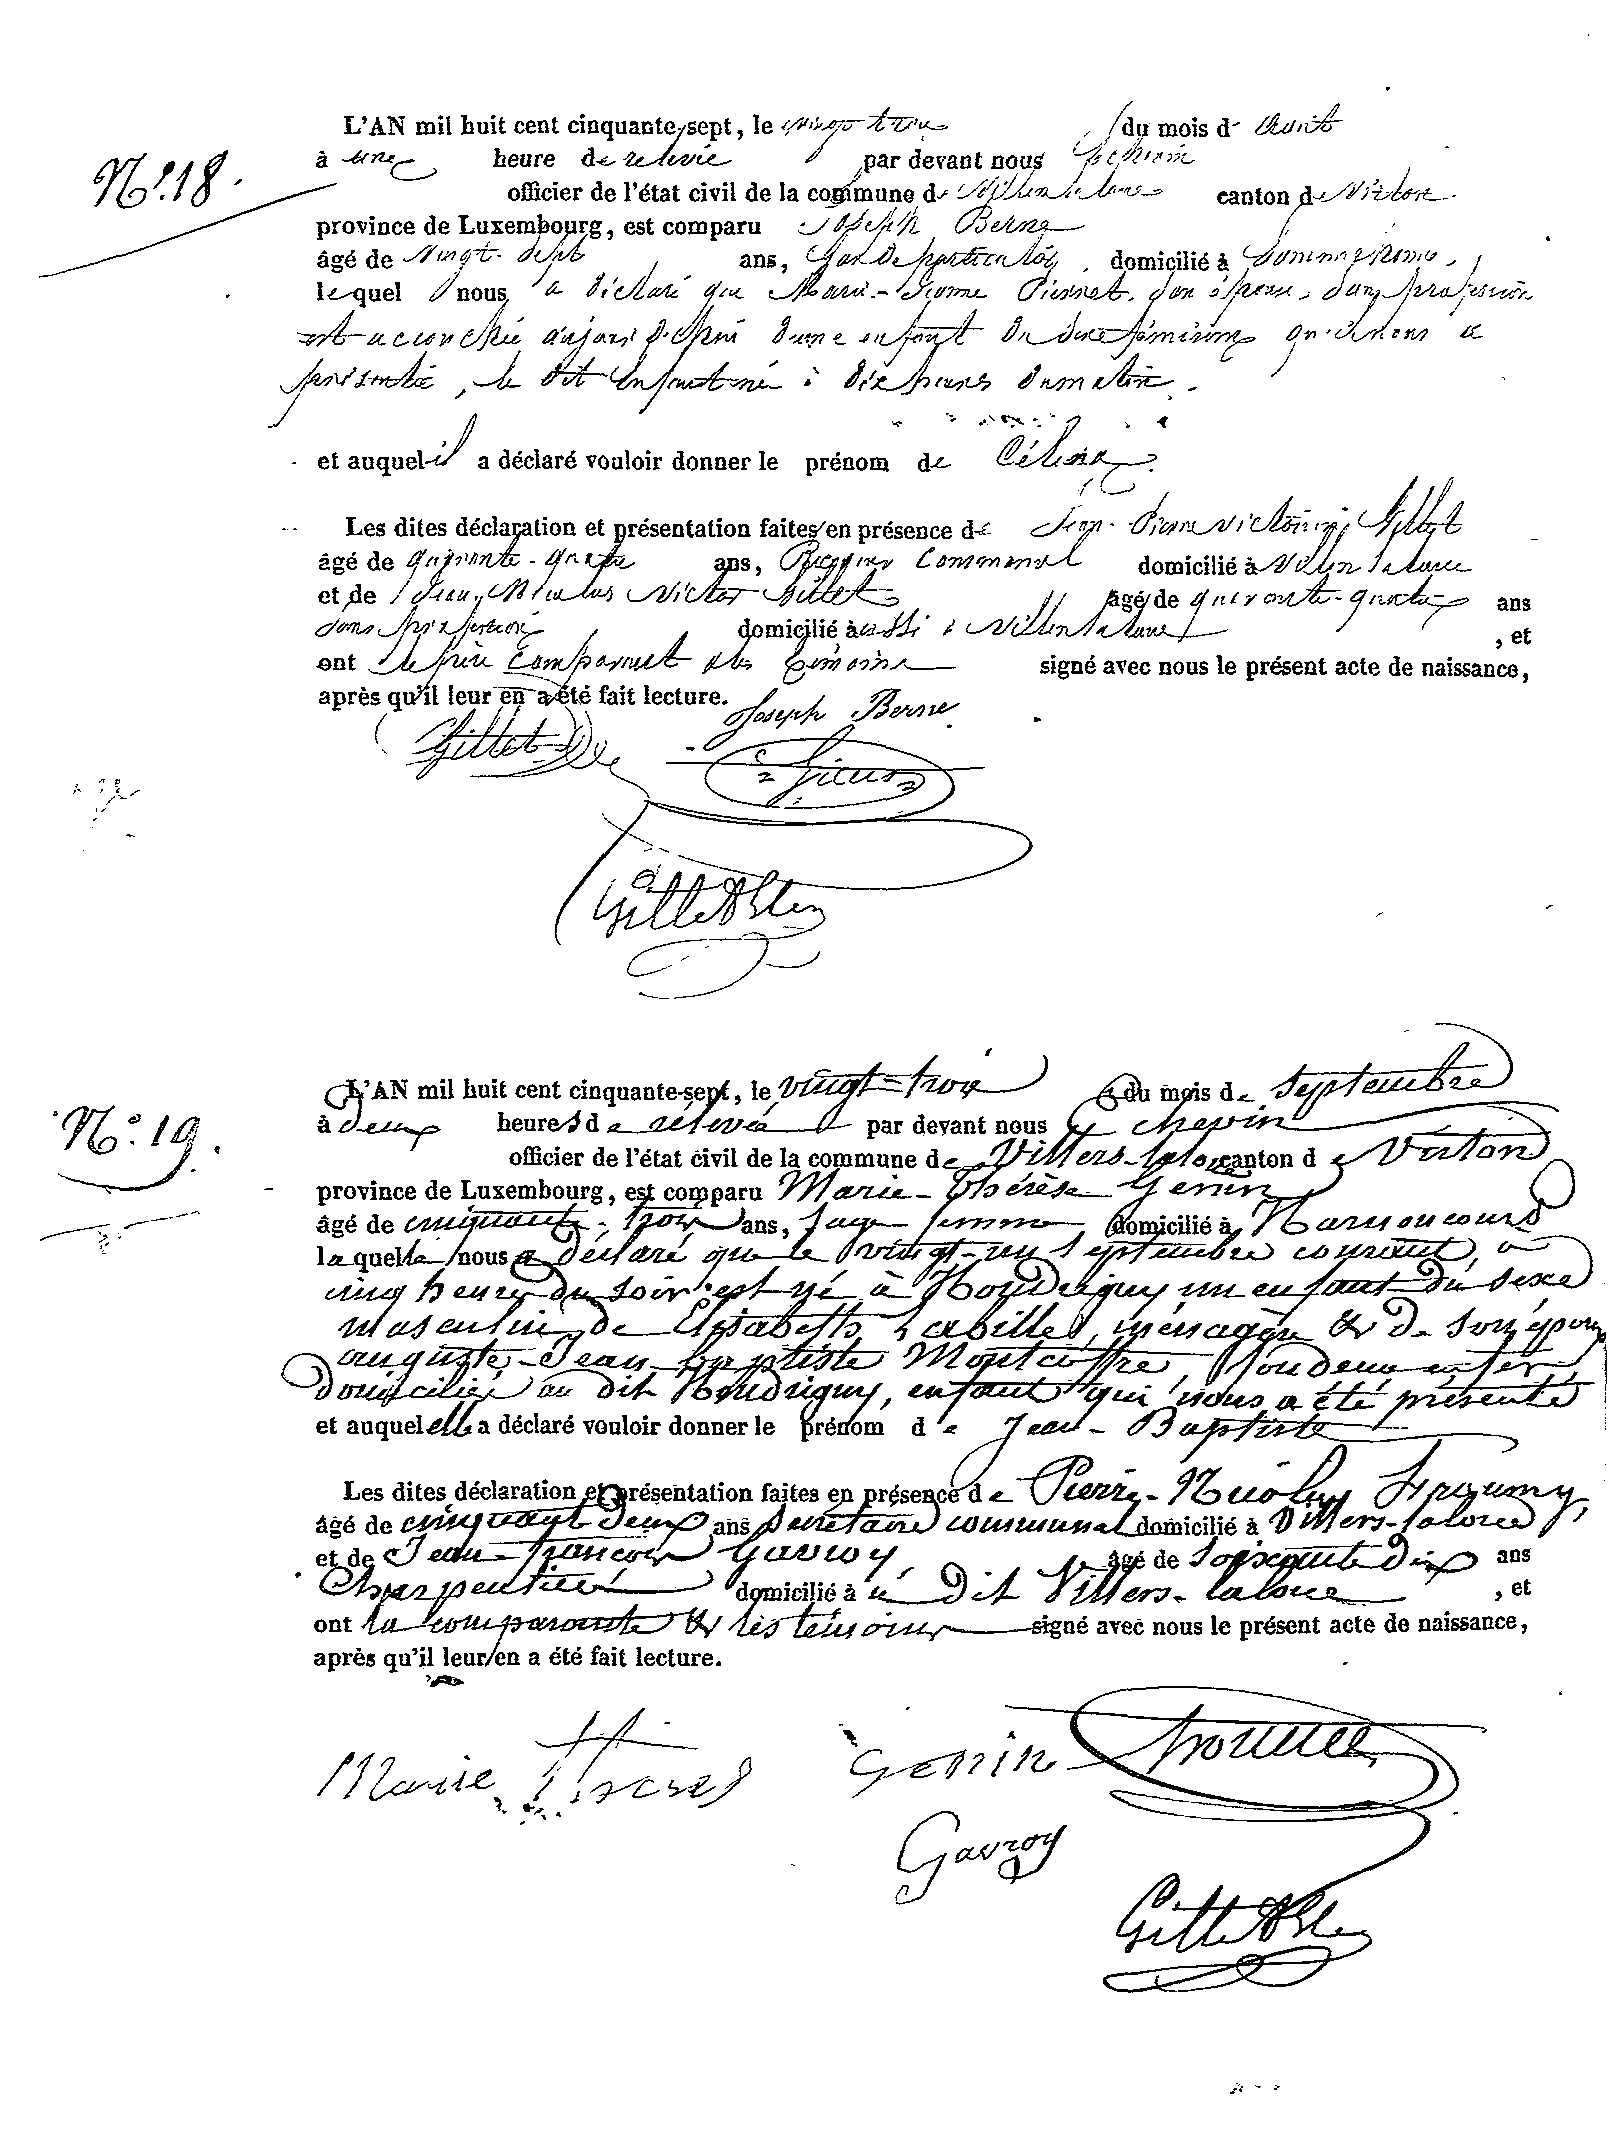 N.° 18.
L'AN mil huit cent cinquante-sept, le vingt trois du mois d'Août
à une heure de relevée par devant nous échevin
officier de l'état civil de la commune de Villers la loue canton de Virton
province de Luxembourg, est comparu Joseph Berne
âgé de vingt-sept ans, Garde particulier, domicilié à Sommethonne,
lequel nous a déclaré que Marie-Jeanne Pierret, son épouse, sans profession
est accouchée aujourd'hui d'une enfant du sexe féminin qu'il nous a
présentée, le dit Enfant né à dix heures du matin.
et auquel il a déclaré vouloir donner le prénom de Célina
Les dites déclaration et présentation faites en présence de Jean-Pierre Victorin Gillet
âgé de quarante-quatre ans, Receveur Communal domicilié à Villers la loue
et de Jean Nicolas Victor Gillet âgé de quarante-quatre ans
sans profession domicilié aussi à Villers la loue, et
ont le père comparant et les témoins signé avec nous le présent acte de naissance,
après qu'il leur en a été fait lecture.
Joseph Berne
Gillet
Gillet
N.° 19.
L'AN mil huit cent cinquante-sept, le vingt-trois du mois de Septembre
à deux heures de relevée par devant nous échevin
officier de l'état civil de la commune de Villers-la-loue canton de Virton
province de Luxembourg, est comparu Marie-Thérèse Genin
âgé de cinquante-trois ans, sage femme domicilié à Harnoncourt
laquelle nous a déclaré que le vingt-un Septembre courant, à
cinq heures du soir est né à Houdrigny un enfant du sexe
masculin de Elisabeth Labille, ménagère & de son époux
auguste-Jean-baptiste Montcoffre, fondeur en fer,
domiciliés au dit Houdrigny, enfant qui nous a été présenté
et auquel elle a déclaré vouloir donner le prénom de Jean-Baptiste
Les dites déclaration et présentation faites en présence de Pierre-Nicolas
âgé de cinquante deux ans Secrétaire communal domicilié à Villers-laloue,
et de Jean-françois Gavroy, âgé de soixante dix ans
Charpentier domicilié à u dit Villers-laloue, et
ont la comparante & les témoins signé avec nous le présent acte de naissance,
après qu'il leur en a été fait lecture.
Marie Thérèse Genin
Gavroy
Gillet